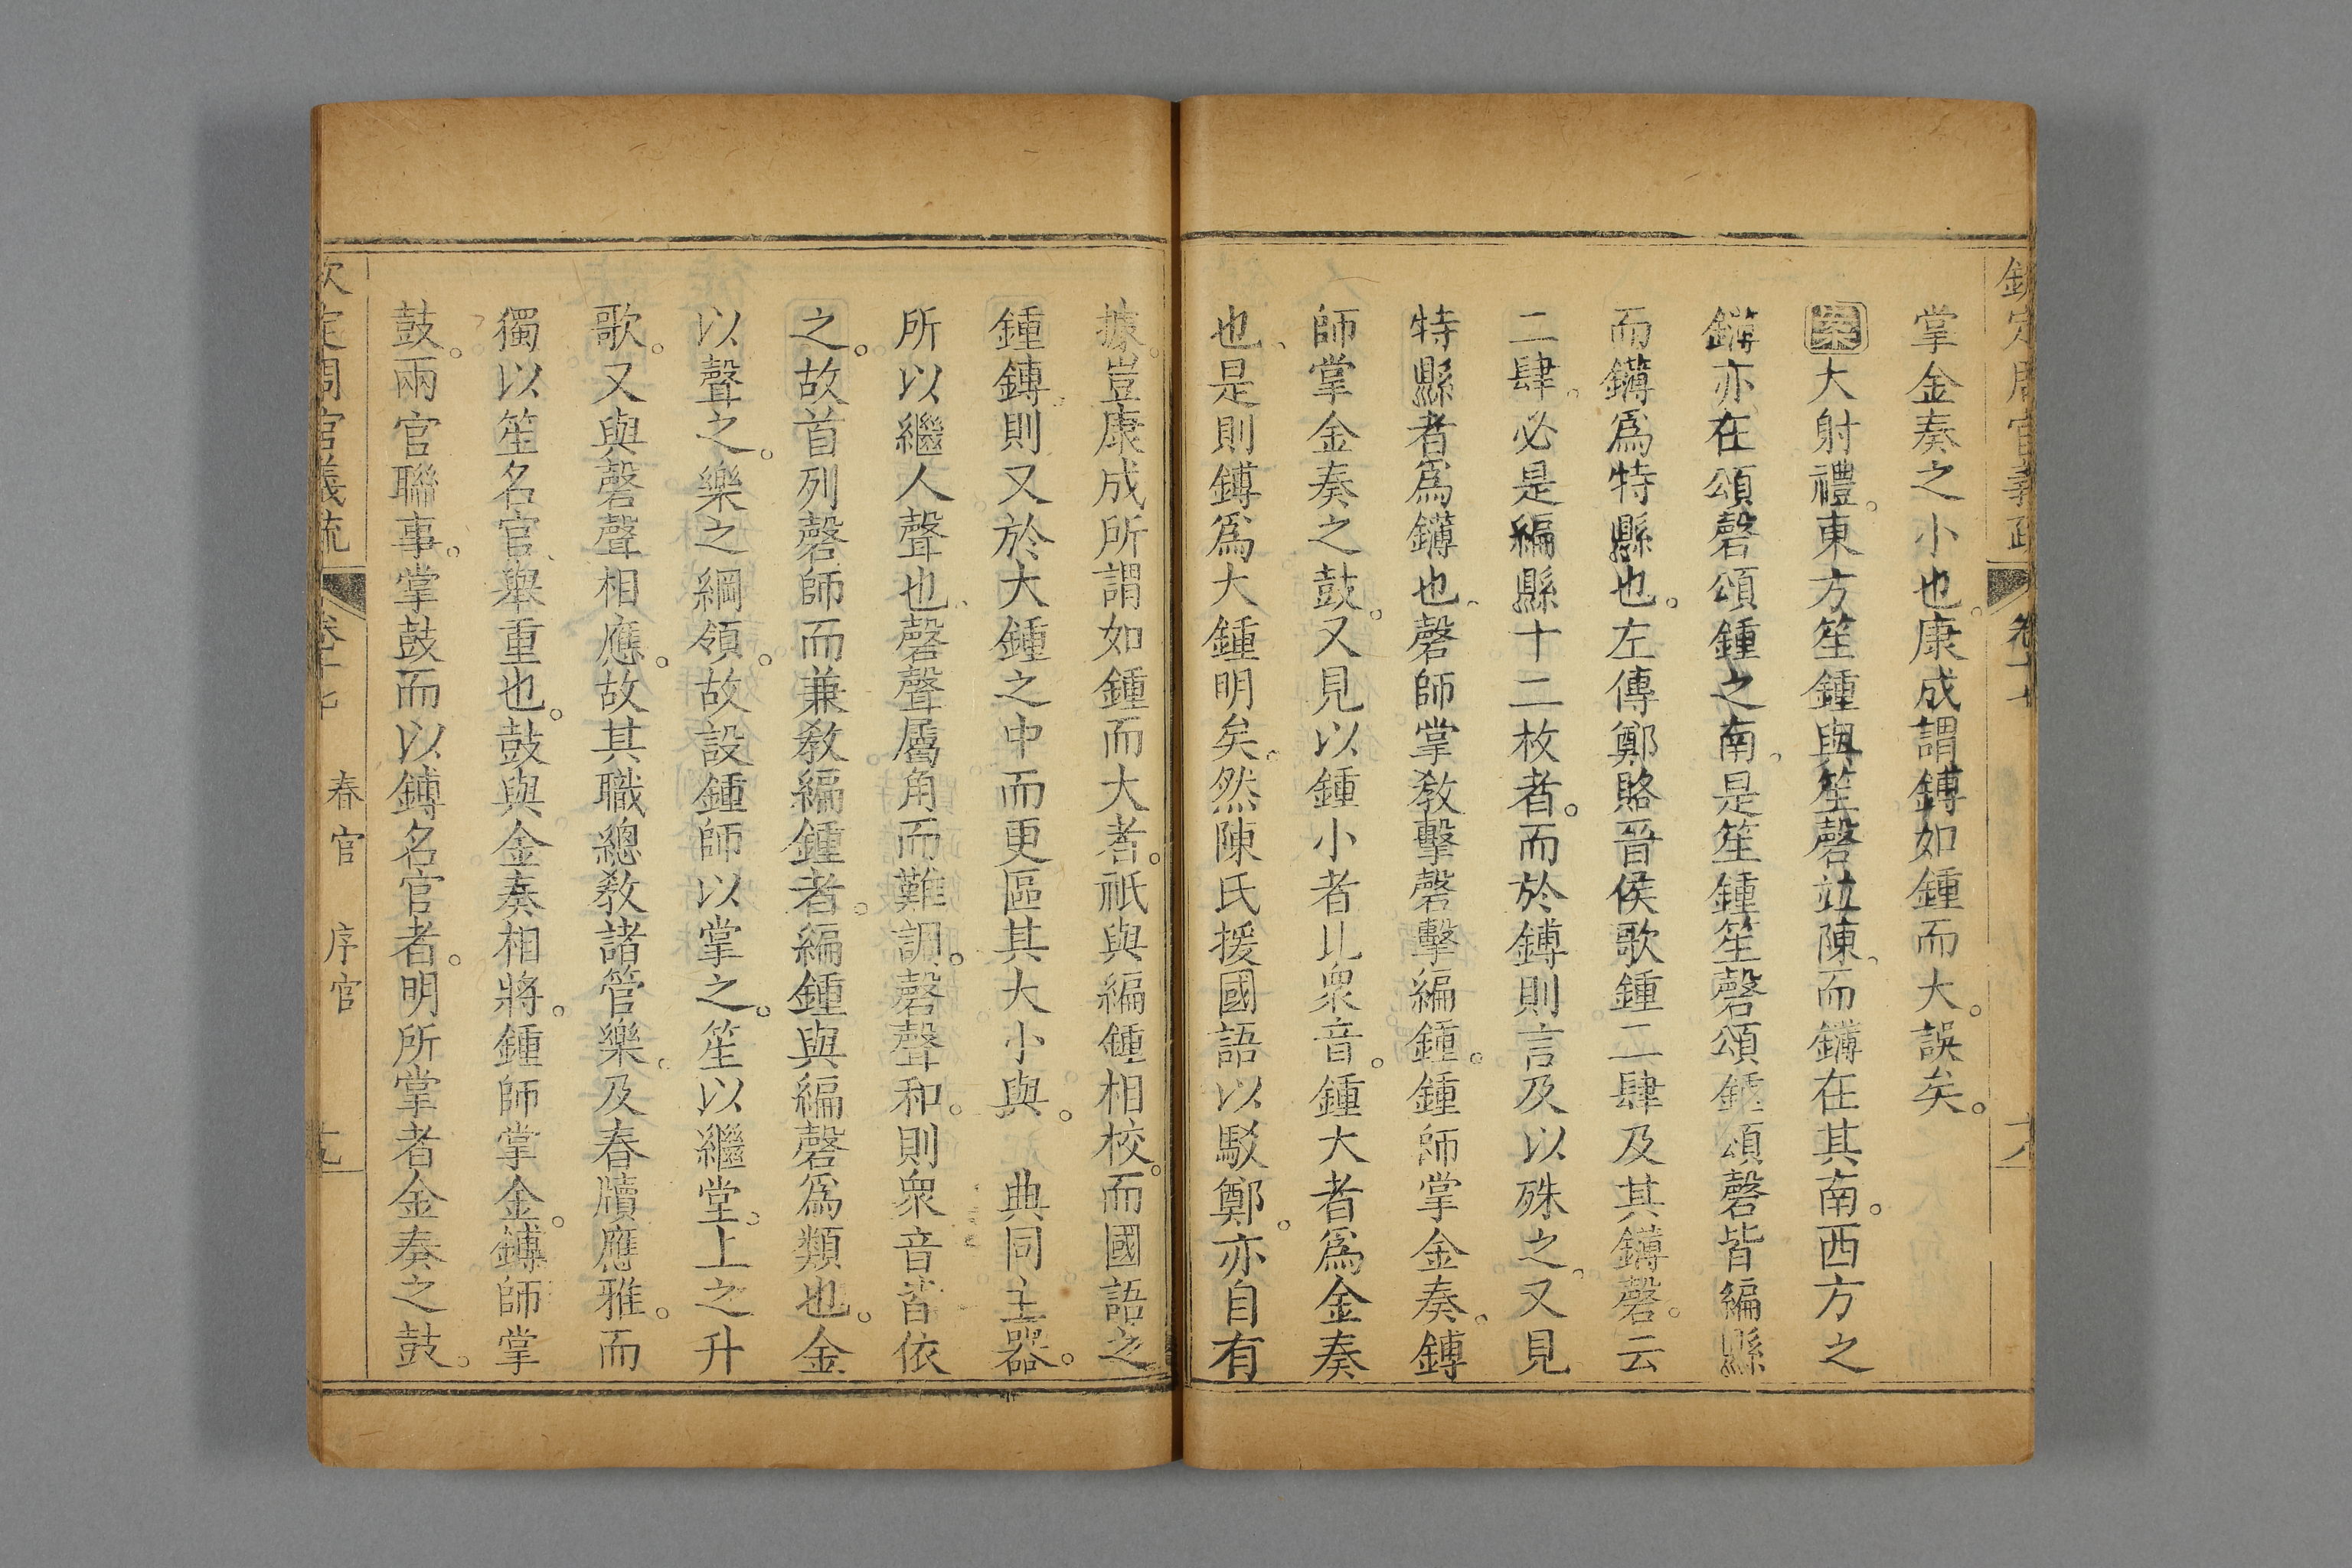 欽定周官義疏 卷十七 十八
掌金奏之小也康成謂鎛如鍾而大。誤矣。
案大射禮。東方笙鍾與笙磬竝陳、而鑮在其南。西方之
鑮亦在頌磬頌鍾之南、是笙鍾笙磬頌鍾頌磬皆編縣
而鑮爲特縣也。左傳鄭賂晉侯歌鍾二肆及其鑮磬。云
二肆。必是編縣十二枚者。而於鎛則言及以殊之、又見
特縣者爲鑮也、磬師掌敎擊磬擊編鍾。鍾師掌金奏。鎛
師掌金奏之鼓。又見以鍾小者比衆音。鍾大者爲金奏
也、是則鎛爲大鍾明矣。然陳氏援國語以駁鄭。亦自有
據。豈康成所謂如鍾而大者。祇與編鍾相校。而國語之
鍾鎛、則又於大鍾之中而更區其大小與。 典同主器。
所以繼人聲也、磬聲屬角而難調。磬聲和。則衆音皆依
之。故首列磬師而兼敎編鍾者。編鍾與編磬爲類也。金
以聲之。樂之綱領。故設鍾師以掌之。笙以繼堂上之升
歌。又與磬聲相應。故其職總敎諸管樂、及舂牘應雅。而
獨以笙名官、舉重也。鼓與金奏相將。鍾師掌金。鎛師掌
鼓。兩官聯事。掌鼓而以鎛名官者。明所掌者金奏之鼓。
欽定周官義疏 卷十七 春官 序官 十九